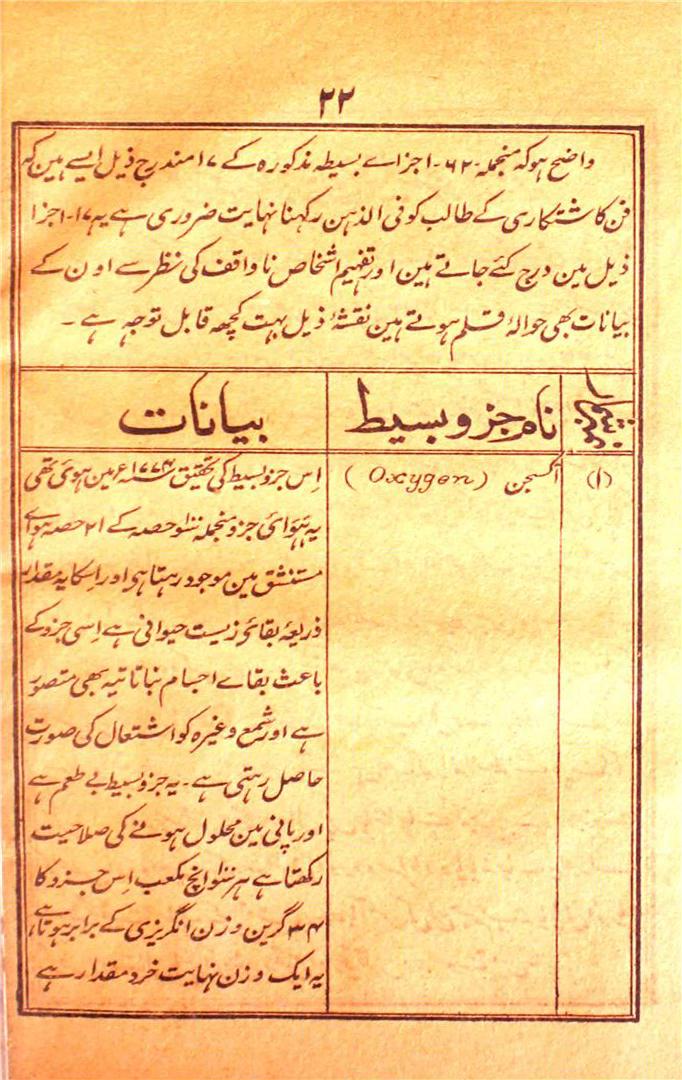 ۲۲
واضح ہو کہ منجملہ ۶۲۔ اجزاے بسیطہ مذکورہ کے ۱۷ مندرجِ ذیل ایسے ہین کہ
فن کاشتکاری کے طالب کو فی الذہن رکہنا نہایت ضروری ہے یہ ۱۷۔ اجزا
ذیل مین درج کئے جاتے ہین اور تفہیم اشخاص ناواقف کی نظر سے اون کے
بیانات بھی حوالۂ قلم ہوتے ہین نقشۂ ذیل بہت کچھہ قابل توجہ ہے ۔
نام جزو بسیط
بیانات
(۱)
اکسجن (Oxygen)
اِس جزو بسیط کی تحقیق ۱۷۷۴ء مین ہوئی تھی
یہ ہوائی جزو منجملہ سو حصہ کے ۲۱ حصہ ہواے
مستنشق مین موجود رہتا ہی اور اِسکا یہ مقدار
ذریعۂ بقائے زیست حیوانی ہے اِسی جزو کے
باعث بقاے اجسام نباتاتیہ بھی متصور
ہے اور شمع وغیرہ کو اشتعال کی صورت
حاصل رہتی ہے ۔ یہ جزو بسیط بے طعم ہے
اور پانی مین محلول ہونے کی صلاحیت
رکھتا ہے ہر سو انچ مکعب اِس جزو کا
۳۴ گرین وزن انگریزی کے برابر ہوتا ہے
یہ ایک وزن نہایت خرد مقدار ہے